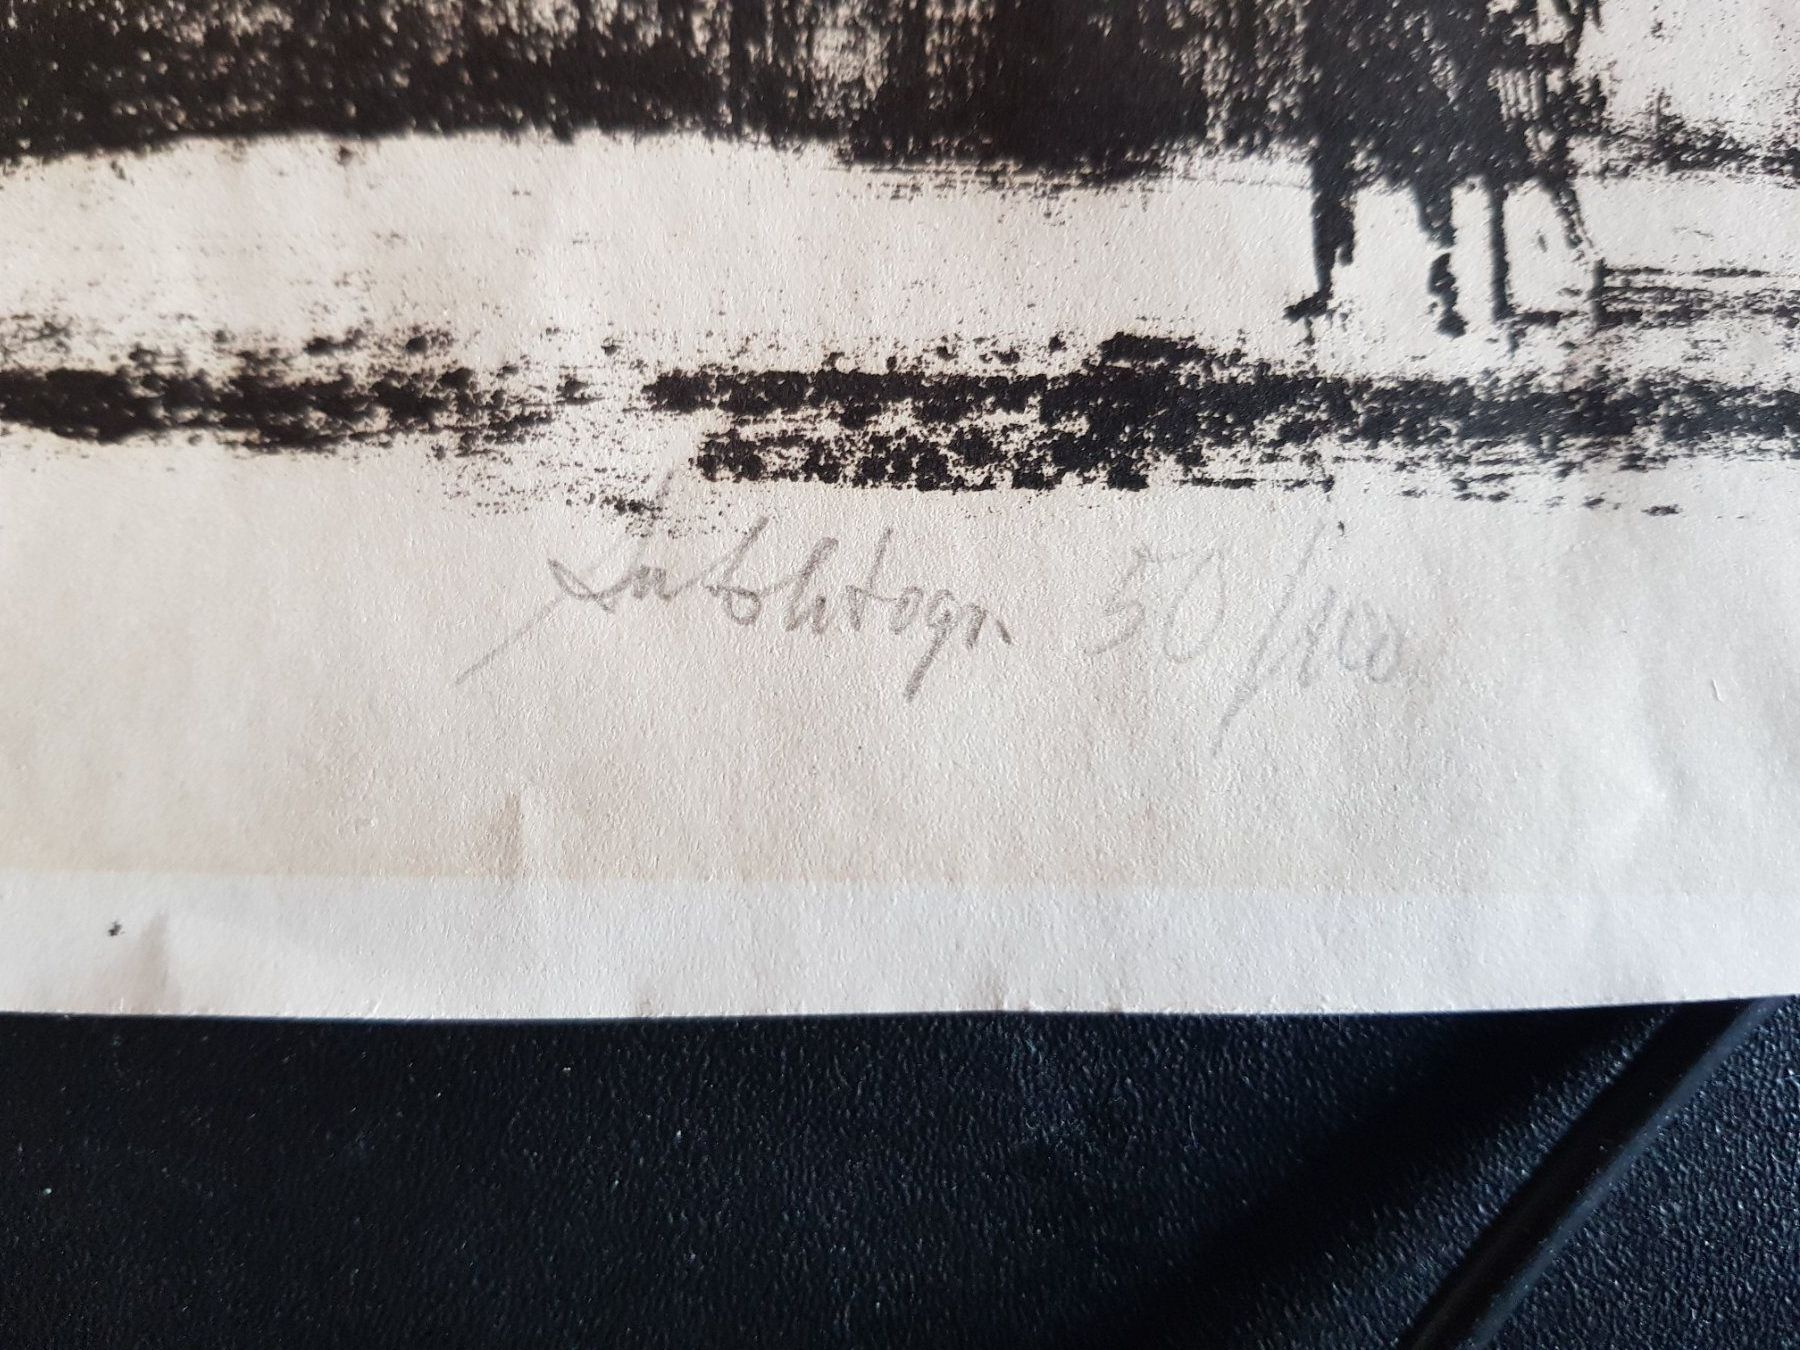 Autolitogr. 50/100